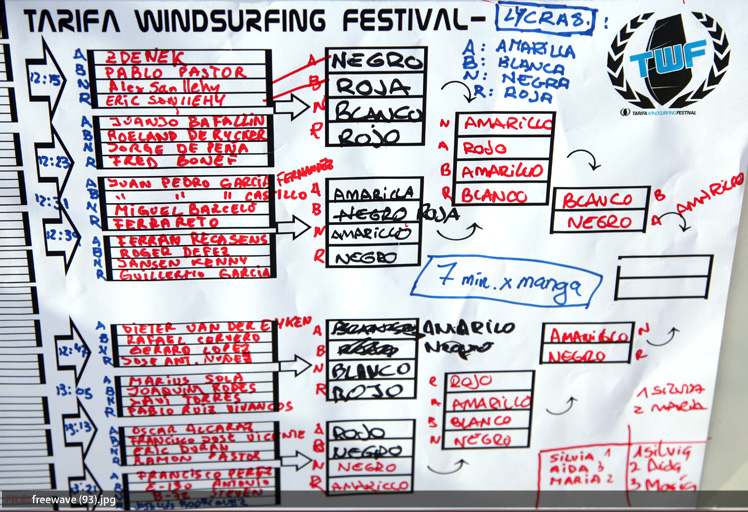 TARIFA WINDSURFING FESTIVAL- LYCRAS:
A: AMARILLA
B: BLANCA
N: NEGRA
R: ROJA
TWF
TARIFA WINDSURFING FESTIVAL
12:15
A ZDENEK
B PABLO PASTOR
N Alex Sanllehy
R ERIC SANLLEHY
A NEGRO
B ROJA
N BLANCO
R ROJO
12:23
A JUANJO BAFALLIN
B ROELAND DE RYCKER
N JORGE DE PEÑA
R FRED BONEF
12:31
A JUAN PEDRO GARCIA FERNANDEZ
B " " " CASTILLO
N MIGUEL BARCELÓ
R FERRA RETO
A AMARILLA
B NEGRO ROJA
N AMARILLO
R NEGRO
12:39
A FERRAN RECASENS
B ROGER DEFEZ
N JANSEN KENNY
R GUILLERMO GARCIA
N AMARILLO
A ROJO
B AMARILLO
R BLANCO
BLANCO B
NEGRO A AMARILLO
7 min. x manga
12:47
A DIETER VAN DER EYKEN
B RAFAEL CORVERO
N GERARD LOPEZ
R JOSE ANT. NUÑEZ
A AMARILO
B NEGRO
N BLANCO
R ROJO
13:05
A MARIUS SOLA
B JOAQUIM RODES
N XAVI TORRES
R PABLO RUIZ VIVANCOS
13:13
A OSCAR ALCARAZ
B FRANCISCO JOSE VICENTE
N ERIC DURAN
R RAMON PASTOR
A ROJO
B NEGRO
N NEGRO
R AMARILLO
13:21
A FRANCISCO PEREZ
B E-130 ANTONIO
N STEVEN
R ROJO
A AMARILLO
B BLANCO
N NEGRO
AMARILLO N
NEGRO R
1 SILVIA
2 MARIA
SILVIA 1
AIDA 3
MARIA 2
1 Silvia
2 Aida
3 María
freewave (93).jpg